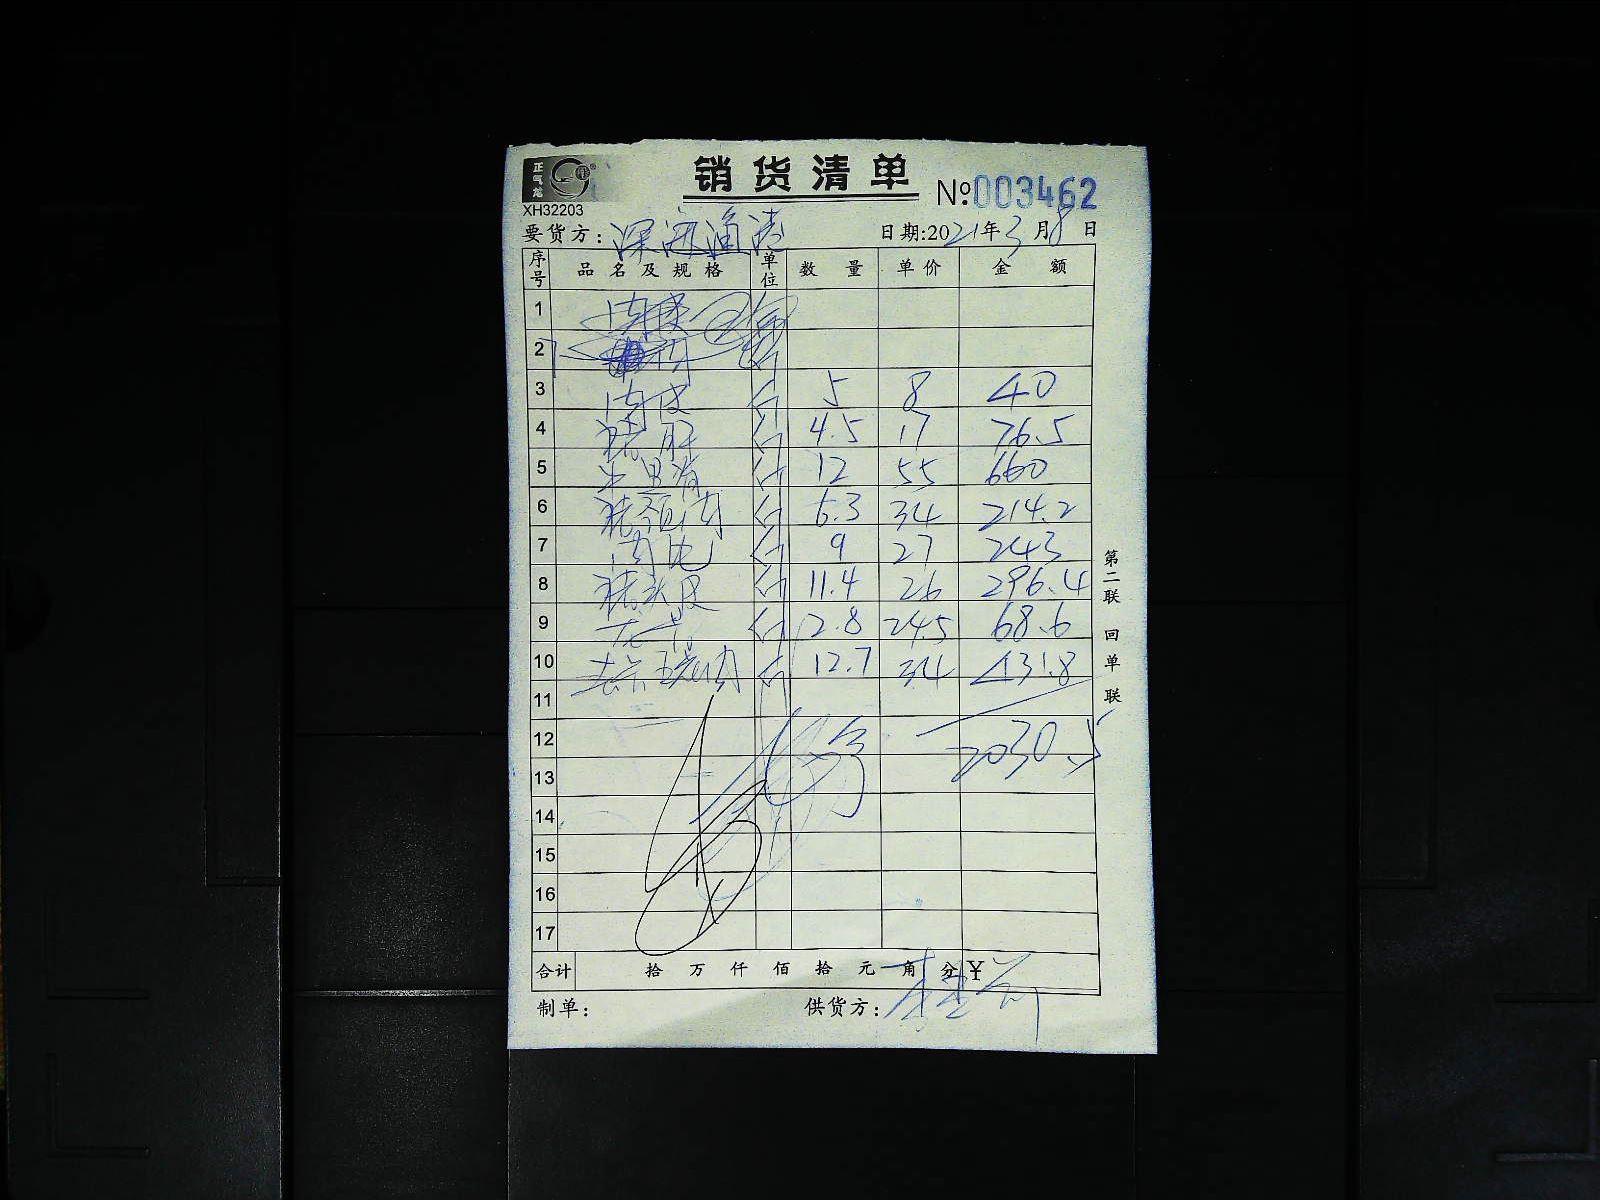 正气龙
销货清单
XH32203
№003462
要货方: 深海渔港 日期:2021年3月8日
序号 品名及规格 单位 数量 单价 金额
1
2
3 肉皮 斤 5 8 40
4 猪肝 斤 4.5 17 76.5
5 斤 12 55 660
6 猪颈肉 斤 6.3 34 214.2
7 斤 9 27 243
8 猪头皮 斤 11.4 26 296.4
9 斤 2.8 24.5 68.6
10 去皮五花肉 斤 12.7 34 431.8
11
12 2030.5
13
14
15
16
17
合计 拾 万 仟 佰 拾 元 角 分 ¥
制单: 供货方:
第二联 回单联